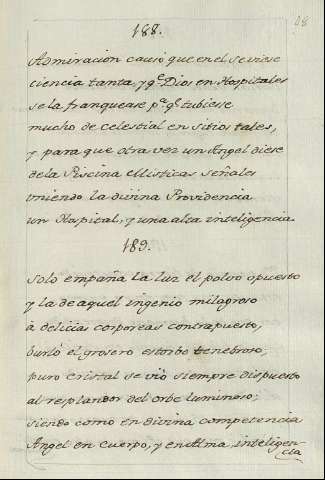 48
188.
Admiracion causó que en el se viese
ciencia tanta, y q.e Dios en Hospitales
se la franquease p.a q.e tubiese
mucho de celestial en sitios tales,
y para que otra vez un Angel diese
de la Piscina Misticas señales
uniendo la divina Providencia
un Hospital, y una alta inteligencia
189.
Solo empaña la luz el polvo opuesto
y la de aquel ingenio milagroso
à delicias corporeas contrapuesto,
burló el grosero estorbo tenebroso,
puro cristal se vió siempre dispuesto
al resplandor del orbe luminoso;
siendo como en divina competencia
Angel en cuerpo, y en Alma, inteligen-
cia